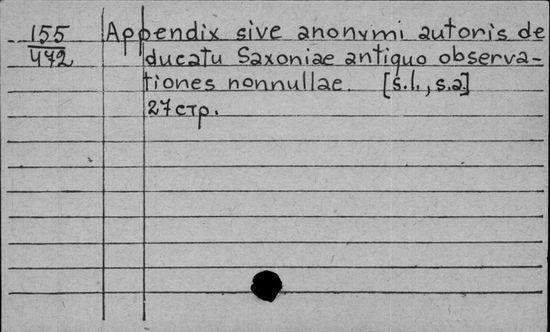 155 Appendix sive anonymi autoris de
472 ducatu Saxoniae antiquo observa-
tiones nonnullae. [s.l., s.a.]
27 стр.